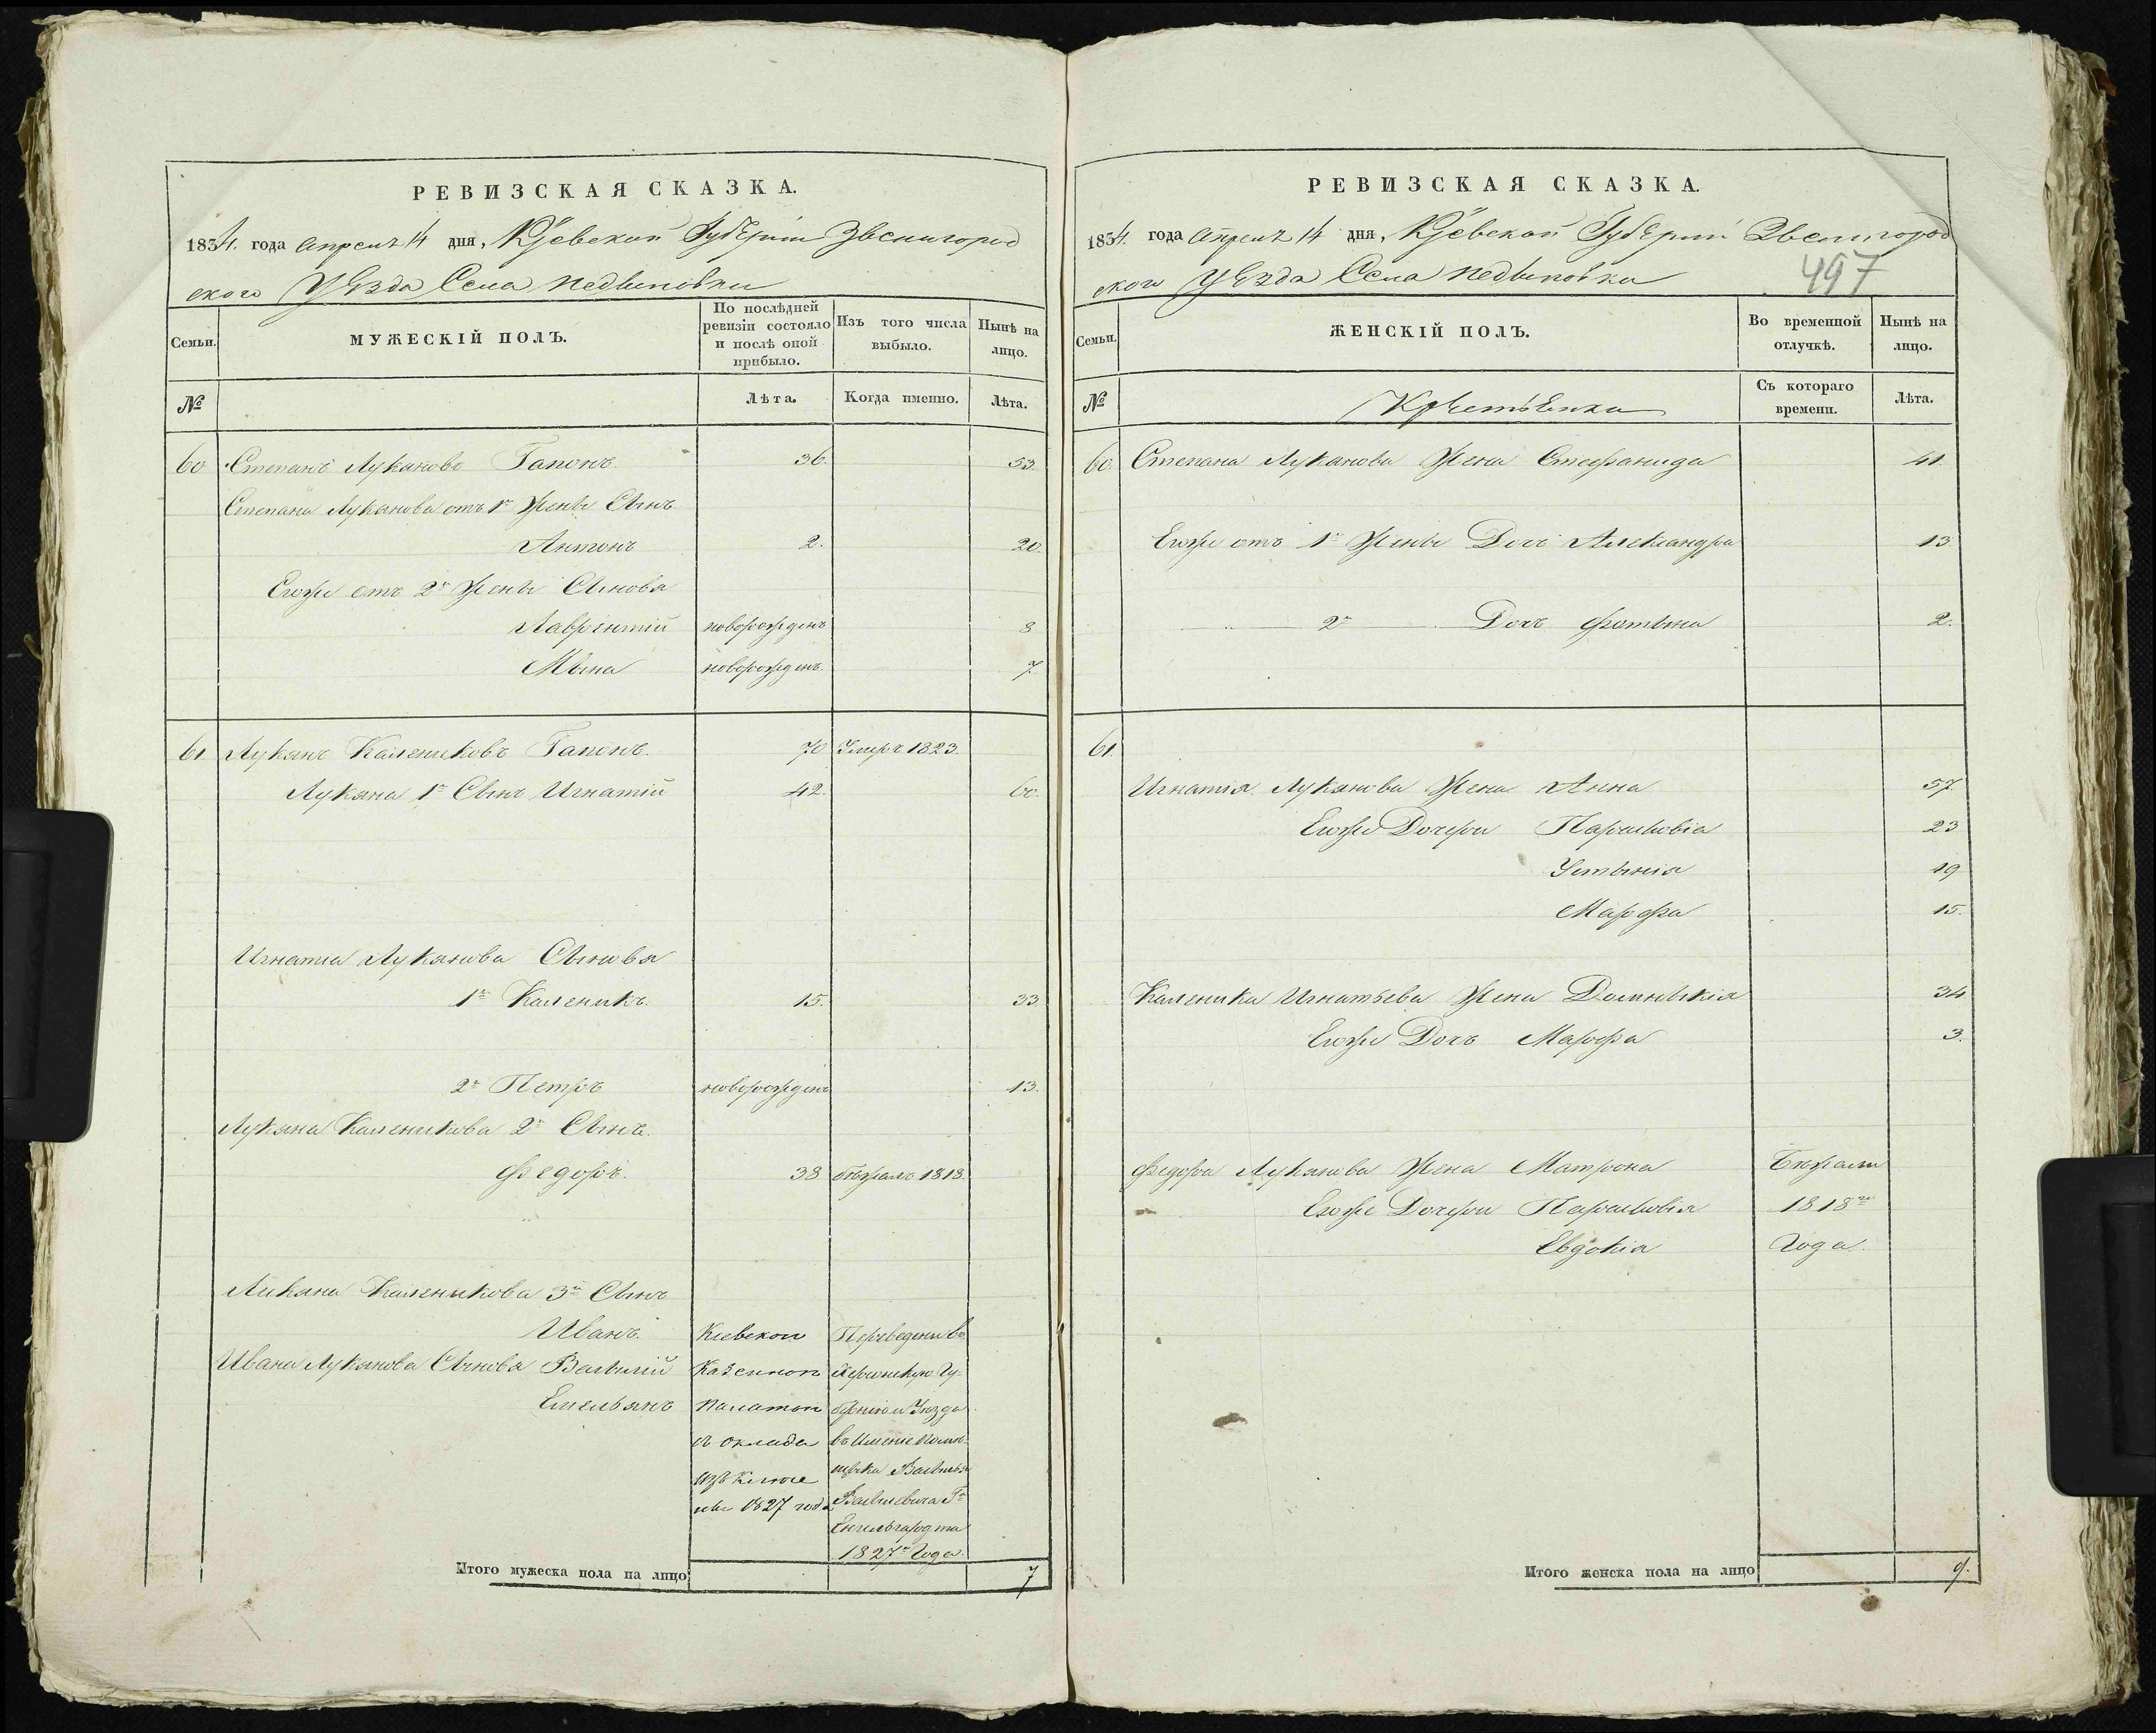 РЕВИЗСКАЯ СКАЗКА.
1834. года Апреля 14 дня, Кіевской Губерніи Звенигород
ского Уезда Села Недвиновки
Семьи.
МУЖЕСКІЙ ПОЛЪ.
По послѣдней ревизіи состояло и послѣ оной прибыло.
Изъ того числа выбыло.
Нынѣ на лицо.
№
Лѣта.
Когда именно.
Лѣта.
60 Степанъ Лукяновъ Гапонъ. 36. 53.
Степана Лукянова отъ 1й Жены Сынъ
Антонъ 2. 20.
Егоже отъ 2й Жены Сыновя
Лаврентій новорожденъ 8
Мына новорожденъ. 7.
61. Лукянъ Калениковъ Гапонъ. 70 Умеръ 1823.
Лукяна 1й Сынъ Игнатій 42. 60.
Игнатія Лукянова Сыновя
1й Каленикъ. 15. 33
2й Петръ новорожденъ 13.
Лукяна Каленикова 2й Сынъ.
Федоръ. 38 бѣжалъ 1818.
Лукяна Каленикова 3й Сынъ
Иванъ.
Ивана Лукянова Сынова Васылій
Емельянъ
Кіевскои
Казеннои
Палатои
съ оклада
1827 года
Переведены въ
Херсонскую Гу-
бернію и Уездъ
въ Именіе Помѣ-
щика Васылья
Васылевича Гна
Енгельгардта
1827го Года.
Итого мужеска пола на лицо 7
РЕВИЗСКАЯ СКАЗКА.
1834. года Апреля 14 дня, Кіевской Губерніи Звенигород
ского Уезда Села Недвиновка
497
Семьи.
ЖЕНСКІЙ ПОЛЪ.
Во временной отлучкѣ.
Нынѣ на лицо.
№
Крестьянка
Съ котораго времени.
Лѣта.
60. Степана Лукянова Жена Стефанида 41.
Егоже отъ 1й Жены Дочь Александра 13
2й Дочь Фотына 2.
61.
Игнатія Лукянова Жена Анна 57
Егоже Дочери Парасковія 23
Устынія 19
Марфа 15.
Каленика Игнатьева Жена Домныкія 34
Егоже Дочь Марфа 3.
Федора Лукянова Жена Матрона Бежали
Егоже Дочери Парасковія 1818го
Евдокія Года.
Итого женска пола на лицо 9.